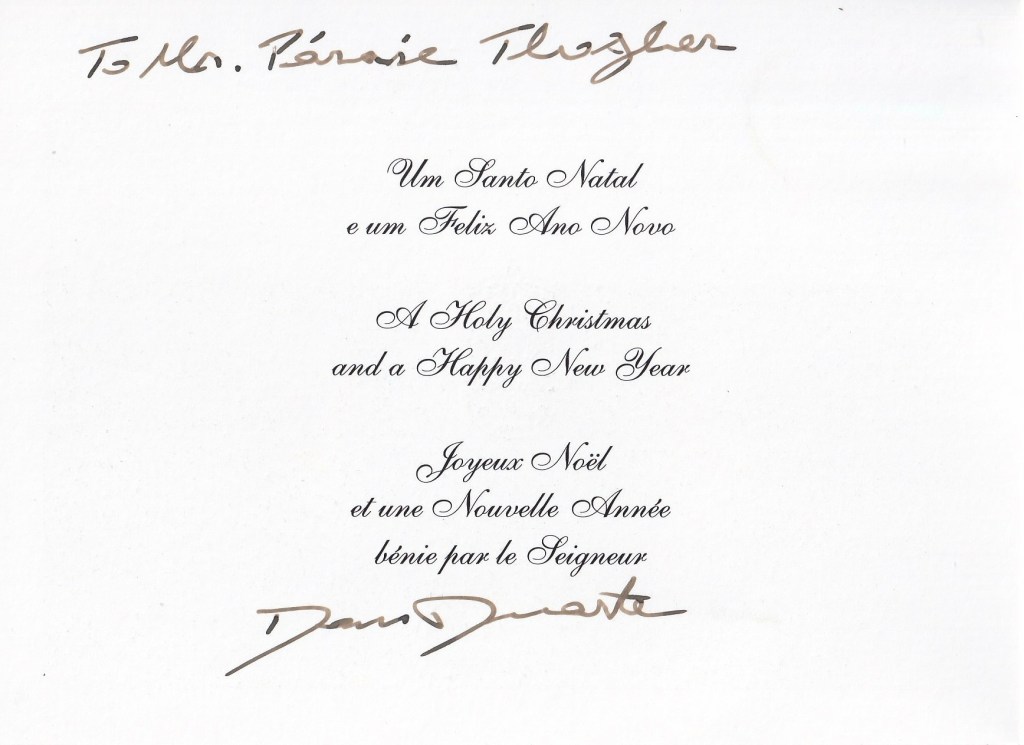 To Mr.
Um Santo Natal
e um Feliz Ano Novo
A Holy Christmas
and a Happy New Year
Joyeux Noël
et une Nouvelle Année
bénie par le Seigneur
Duarte